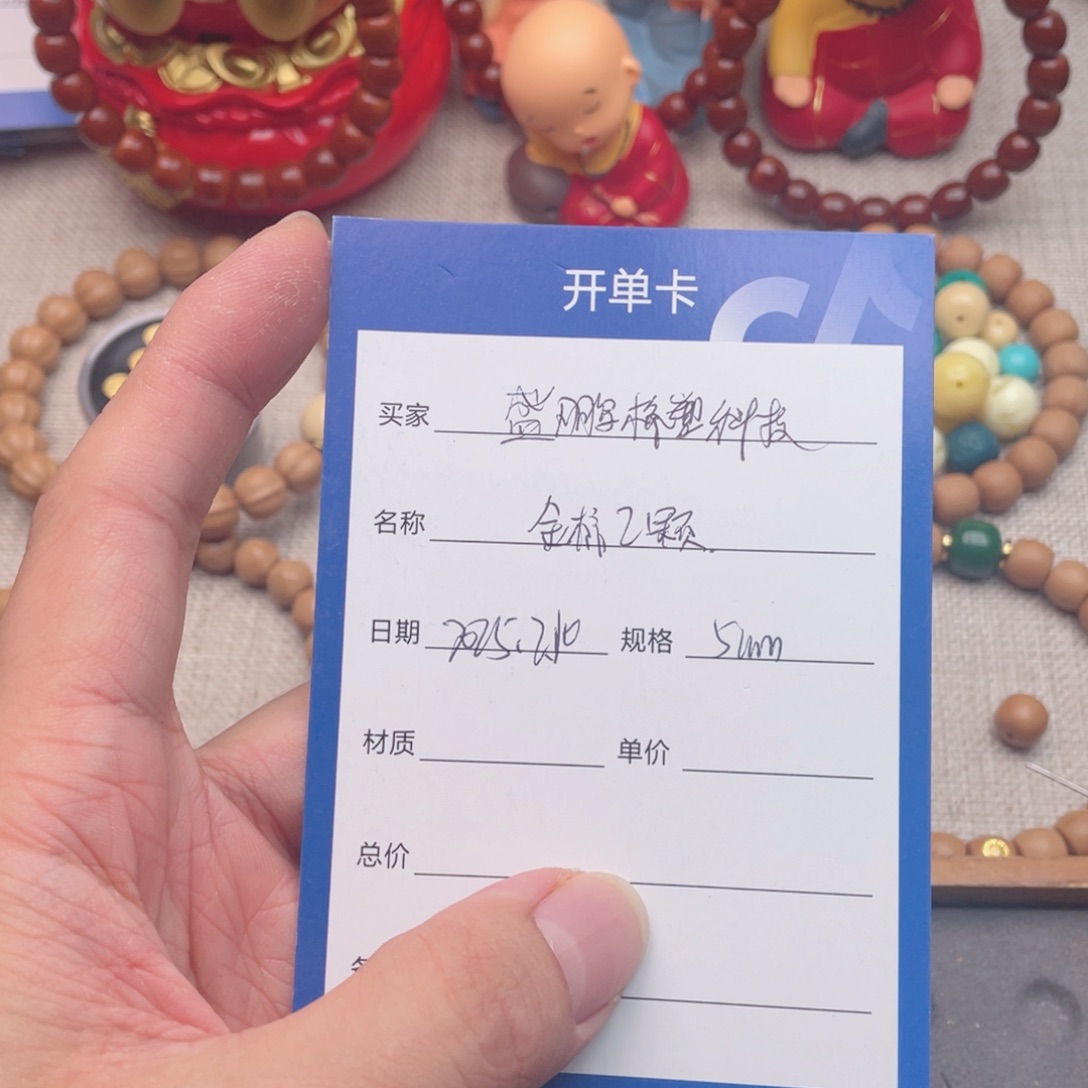 开单卡
买家 盛鹏宇橡塑科技
名称 金棉2颗
日期 2025.2.10 规格 5mm
材质 单价
总价